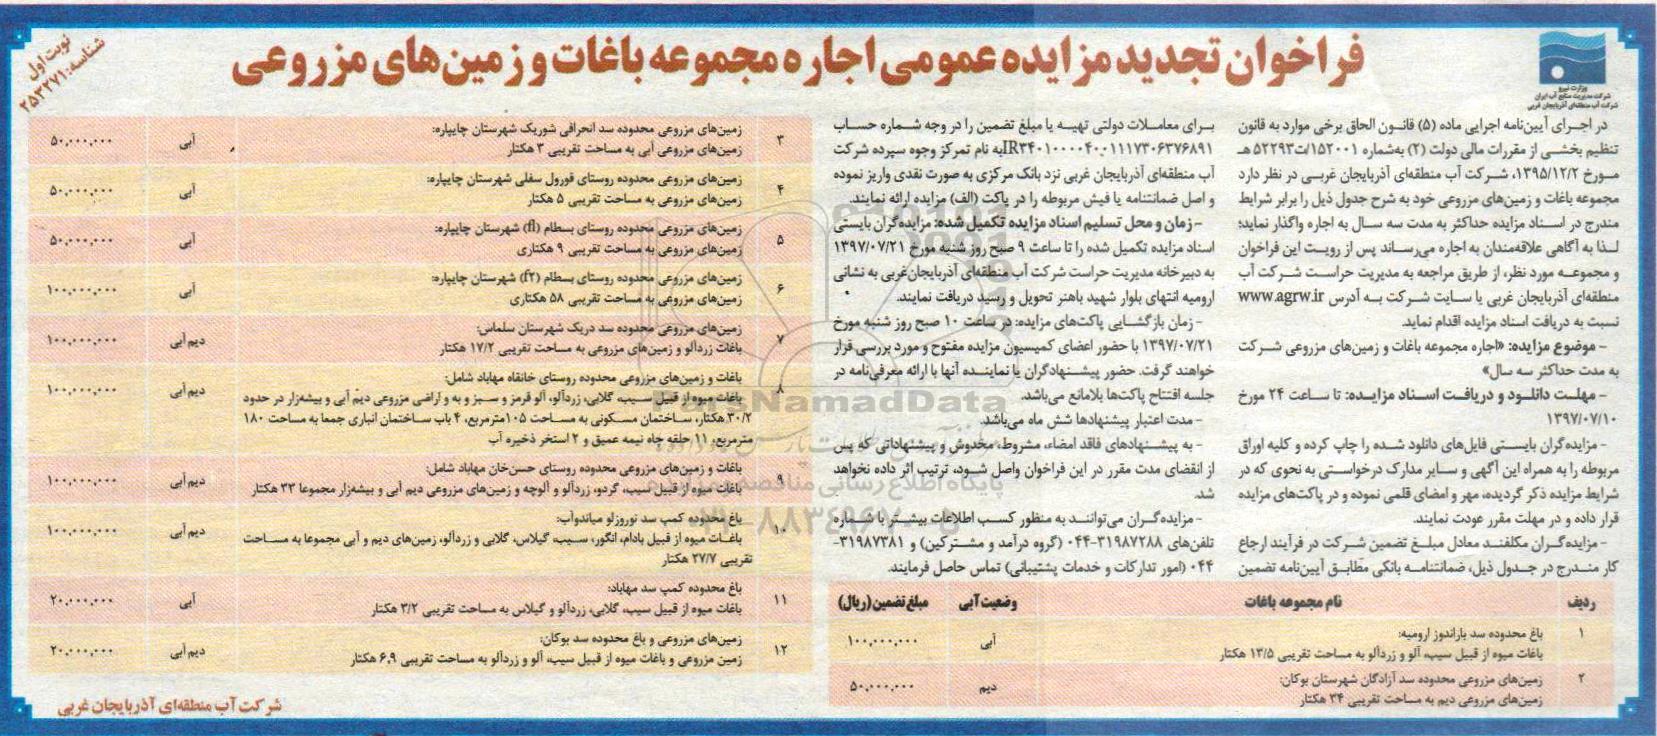 فراخوان تجدید مزایده عمومی اجاره مجموعه باغات و زمین‌های مزروعی
نوبت اول
شناسه: ۲۵۳۲۷۱
وزارت نیرو
شرکت مدیریت منابع آب ایران
شرکت آب منطقه‌ای آذربایجان غربی
در اجرای آیین‌نامه اجرایی ماده (۵) قانون الحاق برخی موارد به قانون
تنظیم بخشی از مقررات مالی دولت (۲) به‌شماره ۱۵۲۰۰۱/ت۵۲۲۹۳ هـ
مورخ ۱۳۹۵/۱۲/۲، شرکت آب منطقه‌ای آذربایجان غربی در نظر دارد
مجموعه باغات و زمین‌های مزروعی خود به شرح جدول ذیل را برابر شرایط
مندرج در اسناد مزایده حداکثر به مدت سه سال به اجاره واگذار نماید؛
لذا به آگاهی علاقه‌مندان به اجاره می‌رساند پس از رویت این فراخوان
و مجموعه مورد نظر، از طریق مراجعه به مدیریت حراست شرکت آب
منطقه‌ای آذربایجان غربی یا سایت شرکت به آدرس www.agrw.ir
نسبت به دریافت اسناد مزایده اقدام نماید.
- موضوع مزایده: «اجاره مجموعه باغات و زمین‌های مزروعی شرکت
به مدت حداکثر سه سال»
- مهلت دانلود و دریافت اسناد مزایده: تا ساعت ۲۴ مورخ
۱۳۹۷/۰۷/۱۰
- مزایده‌گران بایستی فایل‌های دانلود شده را چاپ کرده و کلیه اوراق
مربوطه را به همراه این آگهی و سایر مدارک درخواستی به نحوی که در
شرایط مزایده ذکر گردیده، مهر و امضای قلمی نموده و در پاکت‌های مزایده
قرار داده و در مهلت مقرر عودت نمایند.
- مزایده‌گران مکلفند معادل مبلغ تضمین شرکت در فرآیند ارجاع
کار مندرج در جدول ذیل، ضمانتنامه بانکی مطابق آیین‌نامه تضمین
برای معاملات دولتی تهیه یا مبلغ تضمین را در وجه شماره حساب
IR۳۴۰۱۰۰۰۰۴۰۰۱۱۱۷۳۰۶۳۷۶۸۹۱ به نام تمرکز وجوه سپرده شرکت
آب منطقه‌ای آذربایجان غربی نزد بانک مرکزی به صورت نقدی واریز نموده
و اصل ضمانتنامه یا فیش مربوطه را در پاکت (الف) مزایده ارائه نمایند.
- زمان و محل تسلیم اسناد مزایده تکمیل شده: مزایده‌گران بایستی
اسناد مزایده تکمیل شده را تا ساعت ۹ صبح روز شنبه مورخ ۱۳۹۷/۰۷/۲۱
به دبیرخانه مدیریت حراست شرکت آب منطقه‌ای آذربایجان‌غربی به نشانی
ارومیه انتهای بلوار شهید باهنر تحویل و رسید دریافت نمایند.
- زمان بازگشایی پاکت‌های مزایده: در ساعت ۱۰ صبح روز شنبه مورخ
۱۳۹۷/۰۷/۲۱ با حضور اعضای کمیسیون مزایده مفتوح و مورد بررسی قرار
خواهند گرفت. حضور پیشنهادگران یا نماینده آنها با ارائه معرفی‌نامه در
جلسه افتتاح پاکت‌ها بلامانع می‌باشد.
- مدت اعتبار پیشنهادها شش ماه می‌باشد.
- به پیشنهادهای فاقد امضاء، مشروط، مخدوش و پیشنهاداتی که پس
از انقضای مدت مقرر در این فراخوان واصل شود، ترتیب اثر داده نخواهد
شد.
- مزایده‌گران می‌توانند به منظور کسب اطلاعات بیشتر با شماره
تلفن‌های ۳۱۹۸۷۲۸۸-۰۴۴ (گروه درآمد و مشترکین) و ۳۱۹۸۷۳۸۱-
۰۴۴ (امور تدارکات و خدمات پشتیبانی) تماس حاصل فرمایند.
ردیف نام مجموعه باغات وضعیت آبی مبلغ تضمین (ریال)
۱ باغ محدوده سد باراندوز ارومیه: آبی ۱۰۰,۰۰۰,۰۰۰
باغات میوه از قبیل سیب، آلو و زردآلو به مساحت تقریبی ۱۳/۵ هکتار
۲ زمین‌های مزروعی محدوده سد آزادگان شهرستان بوکان: دیم ۵۰,۰۰۰,۰۰۰
زمین‌های مزروعی دیم به مساحت تقریبی ۳۴ هکتار
۳ زمین‌های مزروعی محدوده سد انحرافی شوریک شهرستان چایپاره: آبی ۵۰,۰۰۰,۰۰۰
زمین‌های مزروعی آبی به مساحت تقریبی ۳ هکتار
۴ زمین‌های مزروعی محدوده روستای قورول سفلی شهرستان چایپاره: آبی ۵۰,۰۰۰,۰۰۰
زمین‌های مزروعی به مساحت تقریبی ۵ هکتار
۵ زمین‌های مزروعی محدوده روستای بسطام (f۱) شهرستان چایپاره: آبی ۵۰,۰۰۰,۰۰۰
زمین‌های مزروعی به مساحت تقریبی ۹ هکتاری
۶ زمین‌های مزروعی محدوده روستای بسطام (f۲) شهرستان چایپاره: آبی ۱۰۰,۰۰۰,۰۰۰
زمین‌های مزروعی به مساحت تقریبی ۵۸ هکتاری
۷ زمین‌های مزروعی محدوده سد دریک شهرستان سلماس: دیم آبی ۱۰۰,۰۰۰,۰۰۰
باغات زردآلو و زمین‌های مزروعی به مساحت تقریبی ۱۷/۲ هکتار
۸ باغات و زمین‌های مزروعی محدوده روستای خانقاه مهاباد شامل: دیم آبی ۱۰۰,۰۰۰,۰۰۰
باغات میوه از قبیل سیب، گلابی، زردآلو، آلو قرمز و سبز و به و اراضی مزروعی دیم آبی و بیشه‌زار در حدود
۳۰/۲ هکتار، ساختمان مسکونی به مساحت ۱۰۵مترمربع، ۴ باب ساختمان انباری جمعا به مساحت ۱۸۰
مترمربع، ۱۱ حلقه چاه نیمه عمیق و ۲ استخر ذخیره آب
۹ باغات و زمین‌های مزروعی محدوده روستای حسن‌خان مهاباد شامل: دیم آبی ۱۰۰,۰۰۰,۰۰۰
باغات میوه از قبیل سیب، گردو، زردآلو و آلوچه و زمین‌های مزروعی دیم آبی و بیشه‌زار مجموعا ۳۳ هکتار
۱۰ باغ محدوده کمپ سد نوروزلو میاندوآب: دیم آبی ۱۰۰,۰۰۰,۰۰۰
باغات میوه از قبیل بادام، انگور، سیب، گیلاس، گلابی و زردآلو، زمین‌های دیم و آبی مجموعا به مساحت
تقریبی ۲۷/۷ هکتار
۱۱ باغ محدوده کمپ سد مهاباد: آبی ۲۰,۰۰۰,۰۰۰
باغات میوه از قبیل سیب، گلابی، زردآلو و گیلاس به مساحت تقریبی ۳/۲ هکتار
۱۲ زمین‌های مزروعی و باغ محدوده سد بوکان: دیم آبی ۲۰,۰۰۰,۰۰۰
زمین مزروعی و باغات میوه از قبیل سیب، آلو و زردآلو به مساحت تقریبی ۶,۹ هکتار
شرکت آب منطقه‌ای آذربایجان غربی
ParsNamadData
پایگاه اطلاع رسانی مناقصه و مزایده
۰۲۱-۸۸۳۴۹۶۷۰-۵